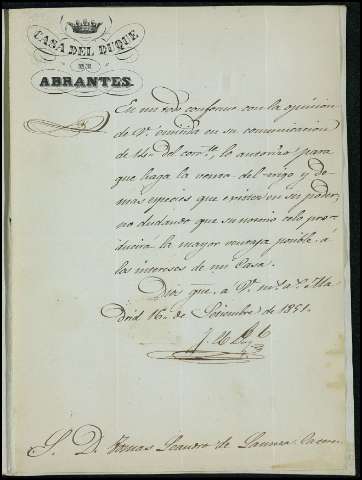 CASA DEL DUQUE
DE
ABRANTES.
En un todo conforme con la opinion
de V. emitida en su comunicacion
de 14 del corr.te, lo autorizo para
que haga la venta del trigo y de-
mas especies que existen en su poder,
no dudando que su notorio celo pro-
ducirá la mayor ventaja posible á
los intereses de mi Casa.
Dios gue. a V. m.s a.s Ma
drid 16 de Setiembre de 1851.
S. D. Leandro de